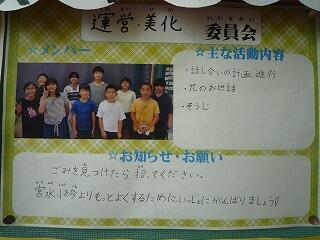 運営・美化 委員会
☆メンバー
☆主な活動内容
・話し合いの計画、進行
・花のお世話
・そうじ
☆お知らせ・お願い
ごみを見つけたら、拾ってください。
宮永小を今よりもっとよくするために、いっしょにがんばりましょう!